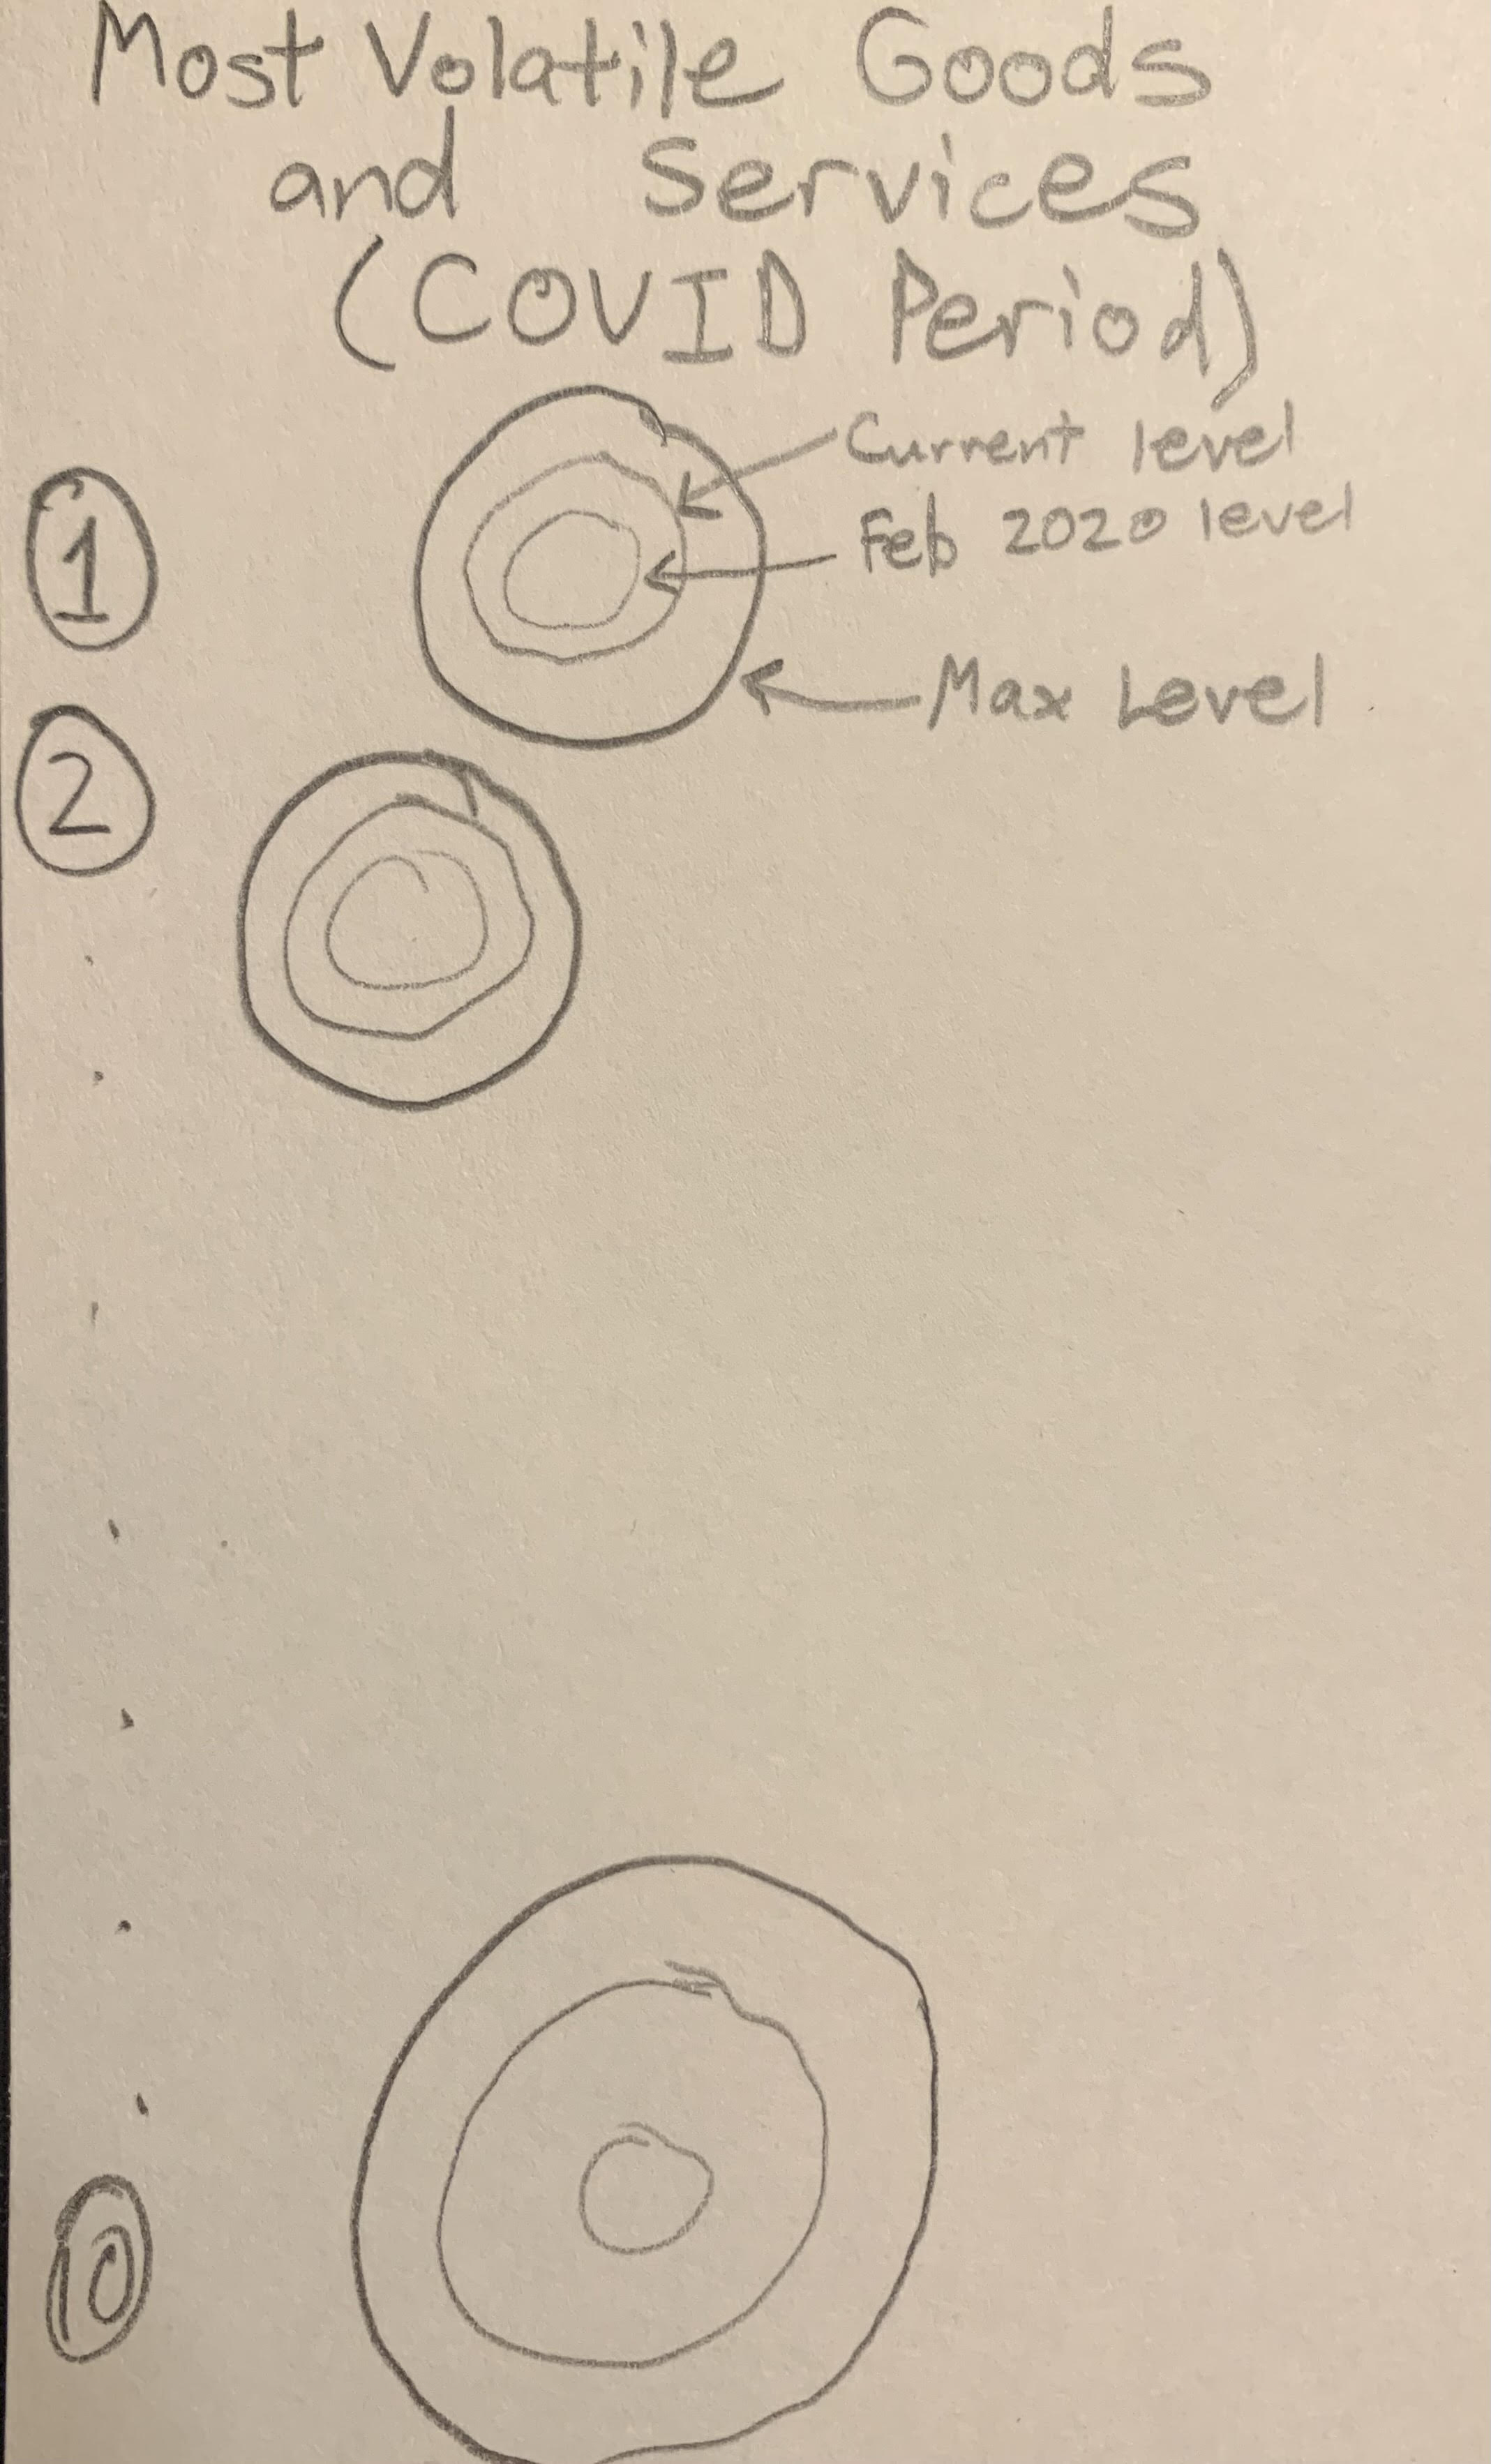 Most Volatile Goods
and Services
(COVID Period)
Current level
1
Feb 2020 level
Max Level
2
10